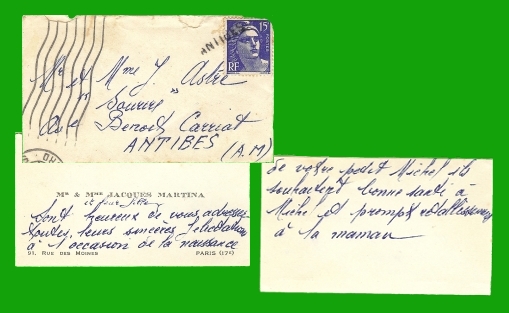 ANTIBES
15F POSTES
RF
Mr et Mme J. Astre
"Sourire"
Ave Benoit Carriat
ANTIBES
(A.M)
Mr & Mme JACQUES MARTINA
et leur fille
Sont heureux de vous adresser
toutes leurs sincères félicitations
à l'occasion de la naissance
91, RUE DES MOINES PARIS (17e)
de votre petit Michel et
souhaitent bonne santé à
Michel et prompt rétablissement
à la maman